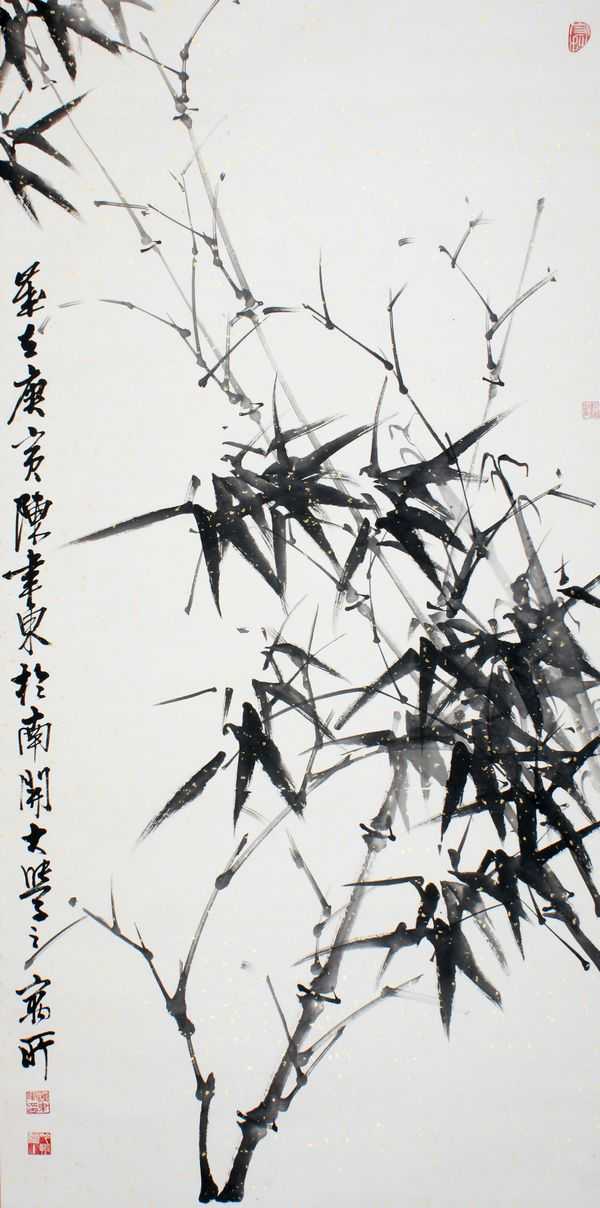 歲在庚寅陳聿東於南開大學之寓所